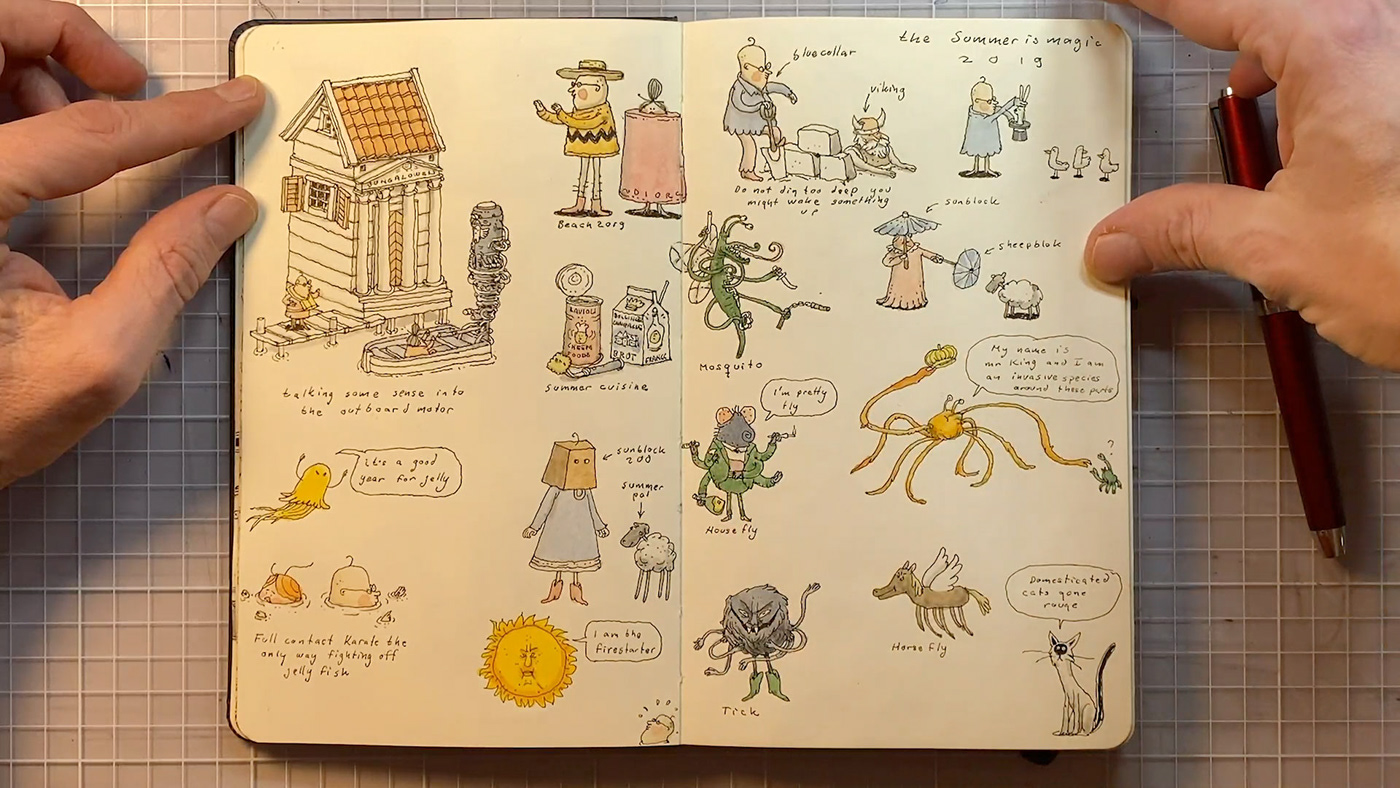 JUNGALOWS
talking some sense into
the outboard motor
Beach zorg
RAVIOLI
KEEM
FOODS
BROT
FRANCE
Summer cuisine
it's a good
year for jelly
sunblock
200
summer
pal
Full contact Karate the
only way fighting off
jelly fish
I am the
firestarter
the Summer is magic
2019
blue collar
viking
Do not dig too deep you
might wake something
up
sunblock
sheepblok
Mosquito
My name is
mr King and I am
an invasive species
around these parts
?
I'm pretty
fly
House fly
Tick
Horse fly
Domesticated
cats gone
rouge